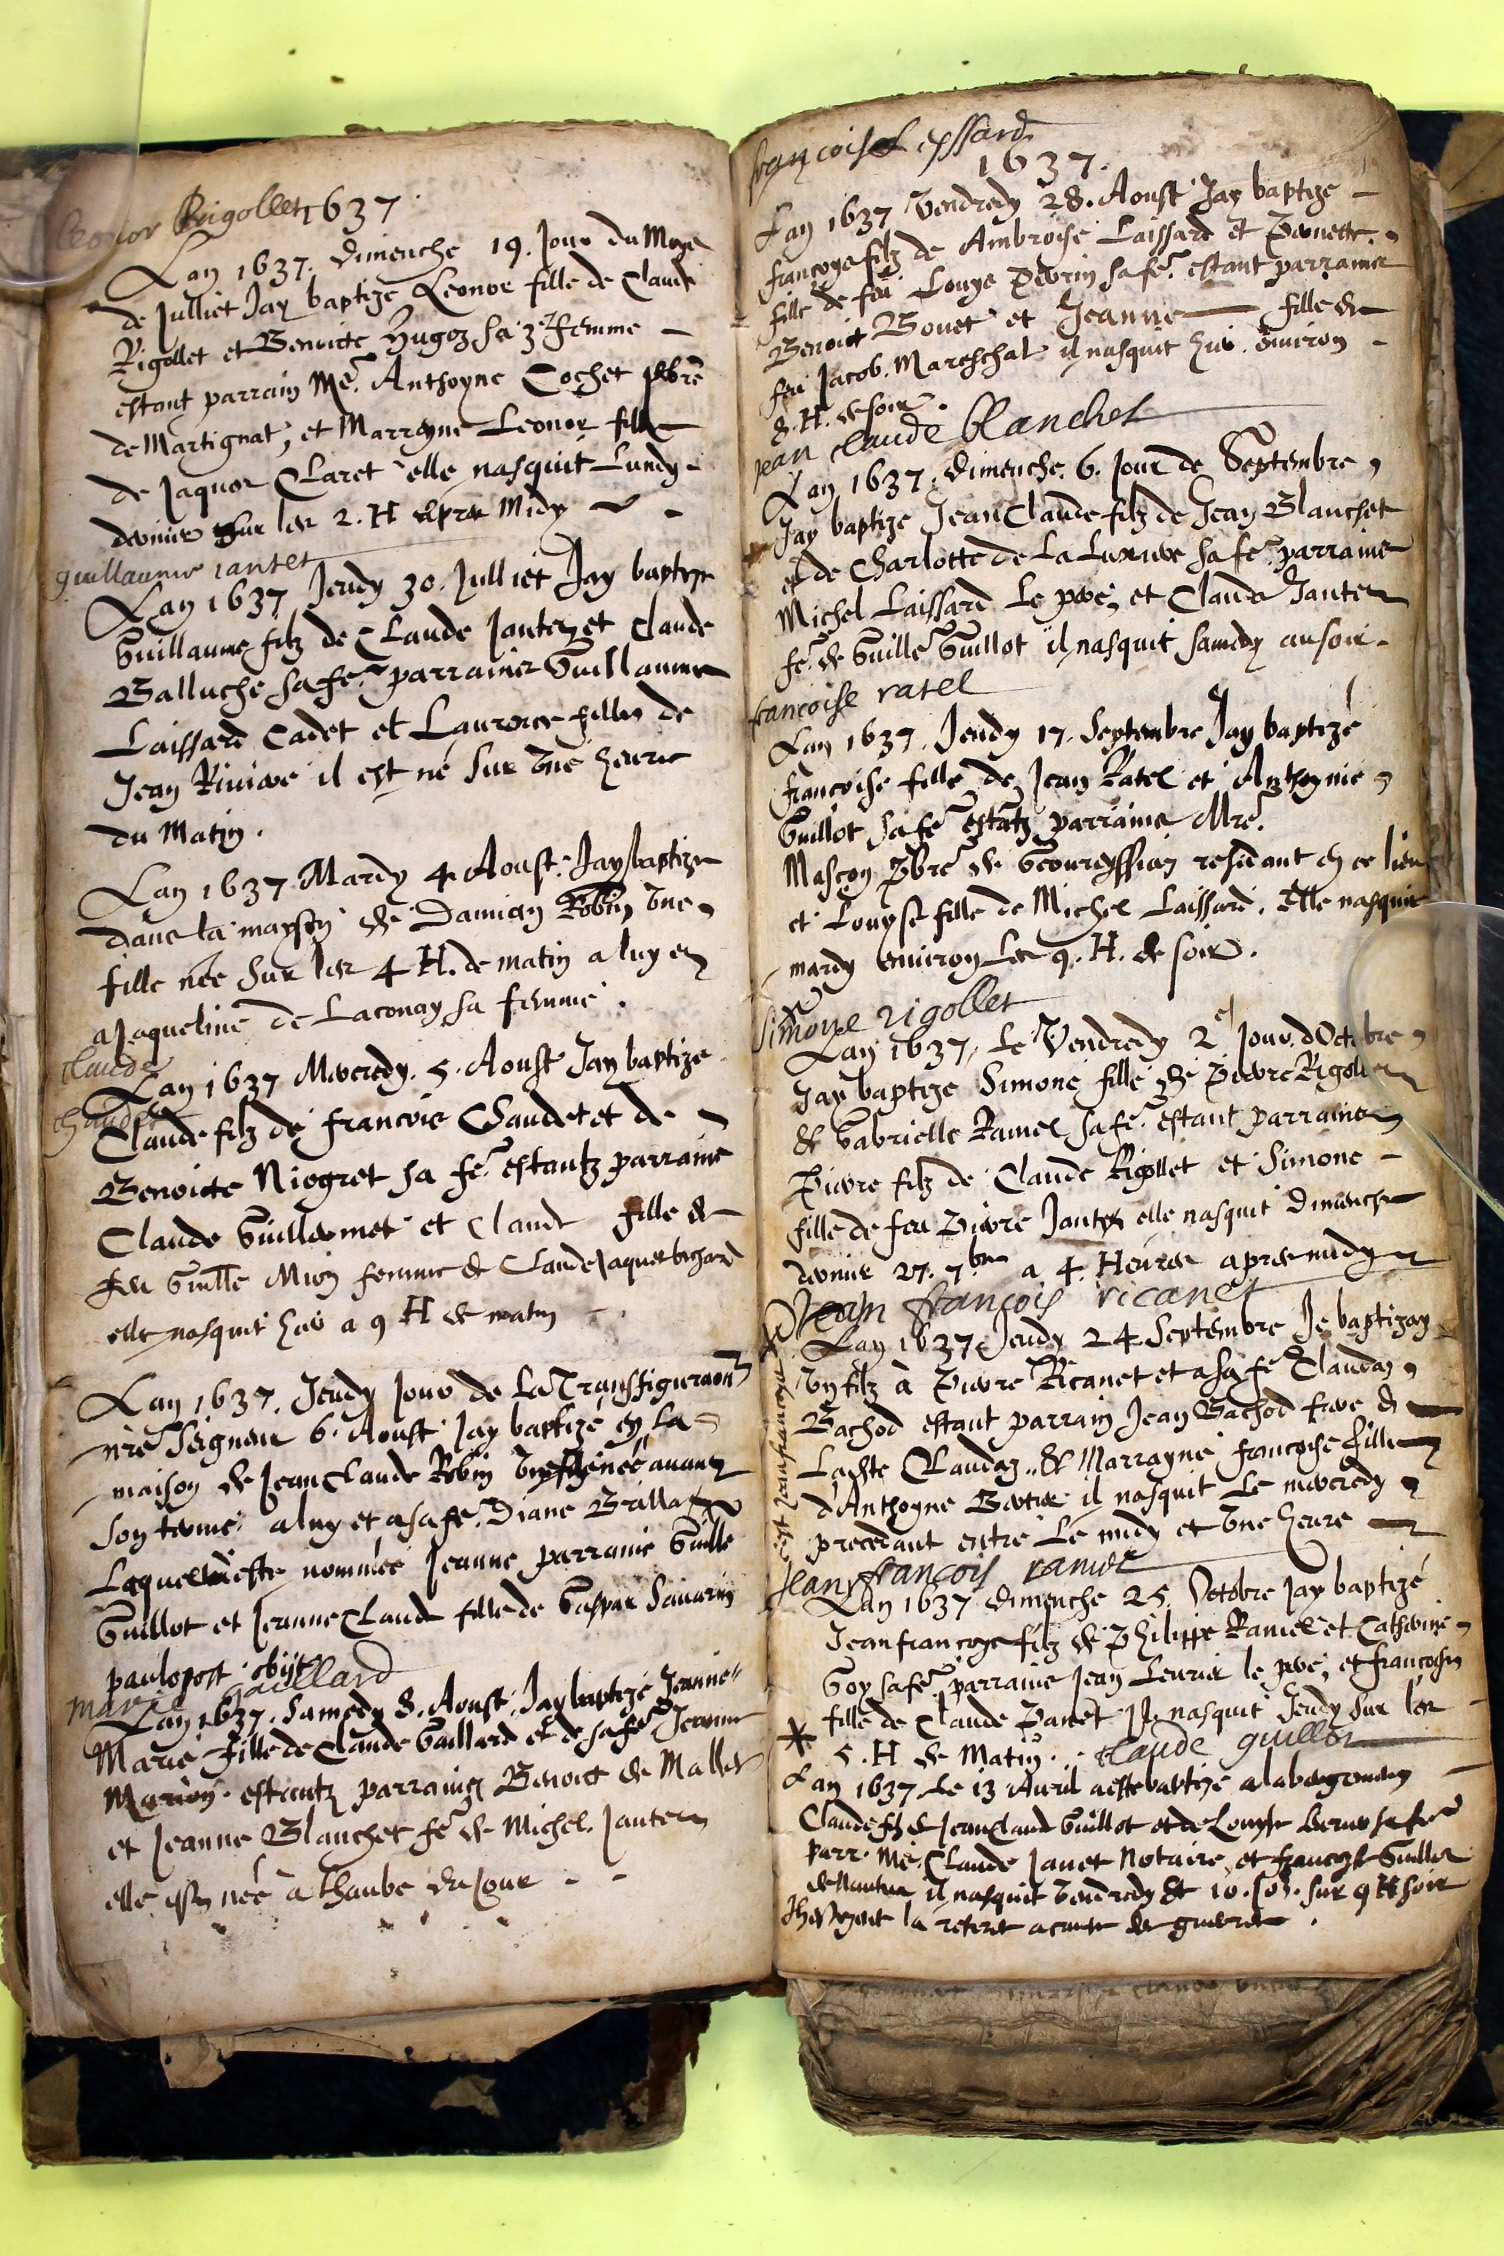 leonor Rigollet 1637.
Lan 1637. Dimenche 19. Jour du Moys
de Julliet Jay baptizé Leonor fille de Claude
Rigollet et Benoicte Hugoz sa 3e femme –
estant parrain Me. Anthoyne Cochet pbre
de Martignat, et Marrayne Leonor fille
de Jaques Claret elle nasquit Lundy
dernier sur les 2. H apres Midy
guillaume iantet
Lan 1637 Jeudy 30. Julliet Jay baptize
Guillaume filz de Claude Jantet et Claude
Balluche sa fe. parraines Guillaume
Laissard Cadet et Laurence fille de
Jean Riviere il est né sur une heure
du Matin.
Lan 1637 Mardy 4 Aoust. Jay baptize
dans la mayson de Damian Robin une
fille née sur les 4 H. de matin a luy et
a Jaqueline de Laconay sa femme.
claude
chaudet
Lan 1637 Mercredy. 5. Aoust Jay baptize
Claude filz de francois Chaudet et de
Benoicte Niogret sa fe. estantz parraine
Claude Guillermet et Claude fille de
feu Guille Mion femme de Claude Jaquet
elle nasquit hier a 9 H de matin
Lan 1637. Jeudy Jour de La Transfiguraon
nre Seigneur 6. Aoust Jay baptizé en la
maison de Jean Claude Robin née avant
son terme. a luy et a sa fe. Diane Brilla
Laquelle nommée Jeanne parraine Guille
Guillot et Jeanne Claude fille de Gaspar Savarin
paulopost obijt
marie gaillard
Lan 1637. Samedy 8. Aoust. Jay baptizé Jeanne
Marie fille de Claude Gaillard et de sa fe Jeanne
Marion. estantz parraines Benoict de Maller
et Jeanne Blanchet fe de Michel. Jantet
elle est née a Laube du Jour - -
françoise Leyssard
1637.
Lan 1637 Vendredy 28. Aoust Jay baptizé –
françoys filz de Ambroise Laissard et Pernette
fille de feu Louys Perrin sa fe. estant parraine
Benoict Bouet et Jeanne — fille de
feu Jacob. Mareschal il nasquit hier. environ –
8. H. de soir.
jean claude blanchet
Lan 1637. Dimenche. 6. Jour de Septembre
Jay baptize Jean Claude filz de Jean Blanchet
et de Charlotte de La sa fe. parraine
Michel Laissard Le pere, et Claude Jantet
fe. de Guille Guillot il nasquit samedy au soir.
francoise ratel
Lan 1637. Jeudy 17. Septembre Jay baptizé
françoise fille de Jean Ratel et Anthoynie
Guillot sa fe estatz parraine Mre.
Mascon Pbre de residant en ce lieu
et Louyse fille de Michel Laissard. Elle nasquit
mardy environ Les 9. H. de soir.
simone rigollet
Lan 1637. Le Vendredy 2e Jour d'Octobre
Jay baptize Simone fille de Pierre Rigollet
& Gabrielle Ramel sa fe. estant parraine
Pierre filz de Claude Rigollet et Simone –
fille de feu Pierre Jantet elle nasquit Dimenche
dernier 27. 7bre a 4. Heures apres midy
Jean françois ricanet
Lan 1637 Jeudy 24 Septembre Je baptizay
un filz à Pierre Ricanet et a sa fe Claudaz
Bachod estant parrain Jean Bachod frere de
Ladite Claudaz. & Marrayne françoise fille
d'Anthoyne il nasquit Le mercredy
precedant entre Le midy et une heure
c'est Jean françoys
Jean françois ramel
Lan 1637 Dimenche 25. Octobre Jay baptizé
Jean françoys filz de Philippe Ramel et Catherine
Goy sa fe. parraine Jean Leurier le pere, et françoise
fille de Claude Panet Il nasquit Jeudy sur les
* 5. H de Matin. claude guillot
Lan 1637 Le 13 Avril a este baptize
Claude filz de Jean Claude Guillot et de Louyse sa fe
Parr. Me Claude Janet Notaire et françoise Guillot
de Nantua il nasquit Vendredy & 10. sur 9 H soir